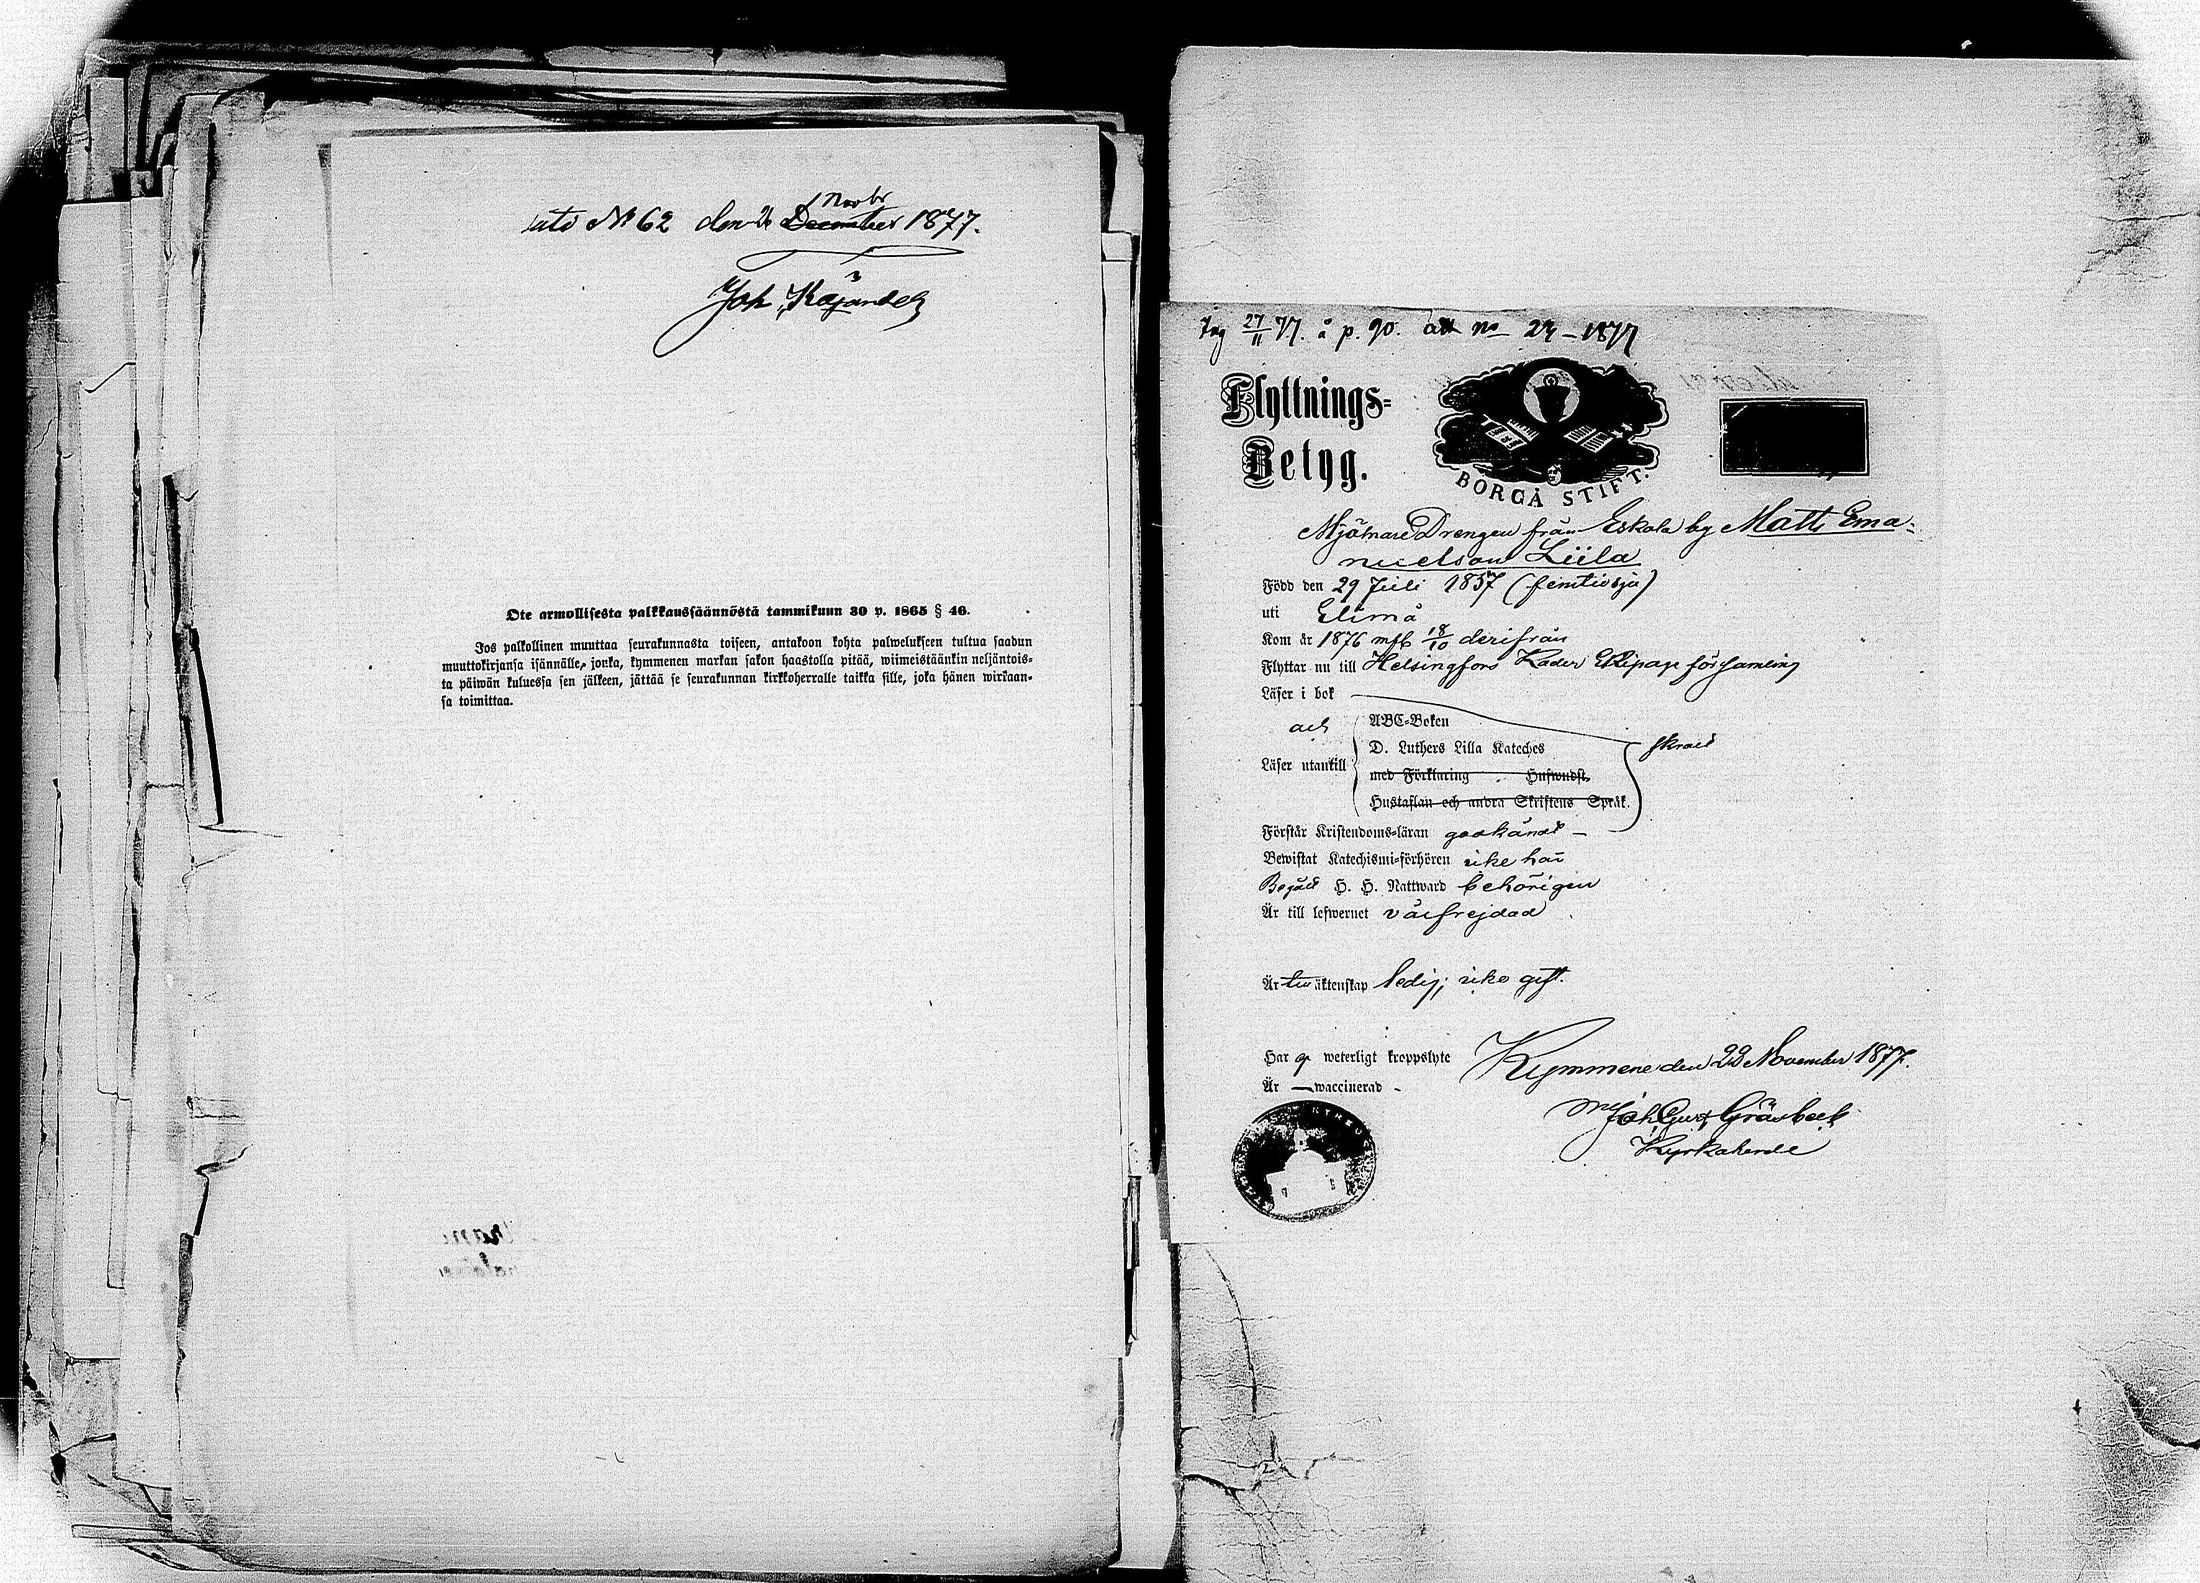 No 62 den 26 December Novbr 1877.
Joh Käjander
Ote armollisesta palkkaussäännöstä tammikuun 30 p. 1865 § 46.
Jos palkollinen muuttaa seurakunnasta toiseen, antakoon kohta palwelukseen tultua saadun
muuttokirjansa isännälle, jonka, kymmenen markan sakon haastolla pitää, wiimeistäänkin neljäntois-
ta päiwän kuluessa sen jälkeen, jättää se seurakunnan kirkkoherralle taikka sille, joka hänen wirkaan-
sa toimittaa.
27/11 77. å p. 90. att no 27 – 1877
Flyttnings-
Betyg.
BORGÅ STIFT.
Mjölnare Drengen från Eskola by Matts Ema-
nuelson Liila
Född den 29 Juli 1857 (femtiosju)
uti Elimä
Kom år 1876 mfb 18/10 derifrån
Flyttar nu till Helsingfors Kader Ekipage församling
Läser i bok
och
ABC-Boken
D. Luthers Lilla Kateches
Läser utantill
med Förklaring Huswudst.
Hustaflan och andra Skriftens Språk.
Förstår Kristendoms-läran godkändt –
Bewistat Katechismi-förhören icke här
Begått H. H. Nattward behörigen
Är till lefwernet välfrejdad
Är till äktenskap ledig; icke gift.
Har ej weterligt kroppslyte
Kymmene den 22 November 1877.
Är — waccinerad -
Joh Gust Gråsbeck
Kyrkoherde